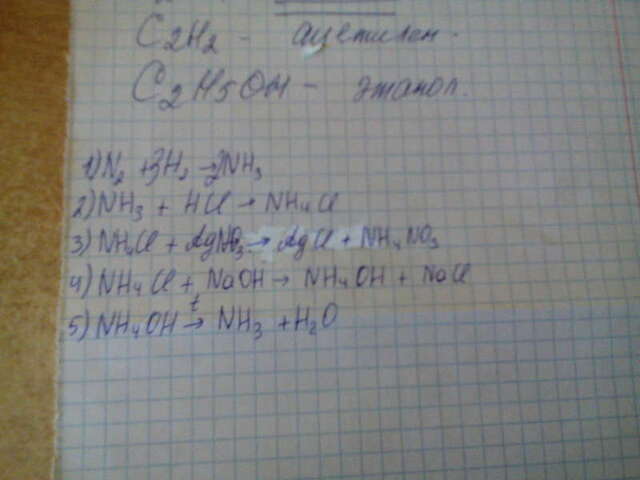 C2H2 - ацетилен.
C2H5OH - этанол.
1) N2 + 3H2 → 2NH3
2) NH3 + HCl → NH4Cl
3) NH4Cl + AgNO3 → AgCl + NH4NO3
4) NH4Cl + NaOH → NH4OH + NaCl
5) NH4OH t→ NH3 + H2O